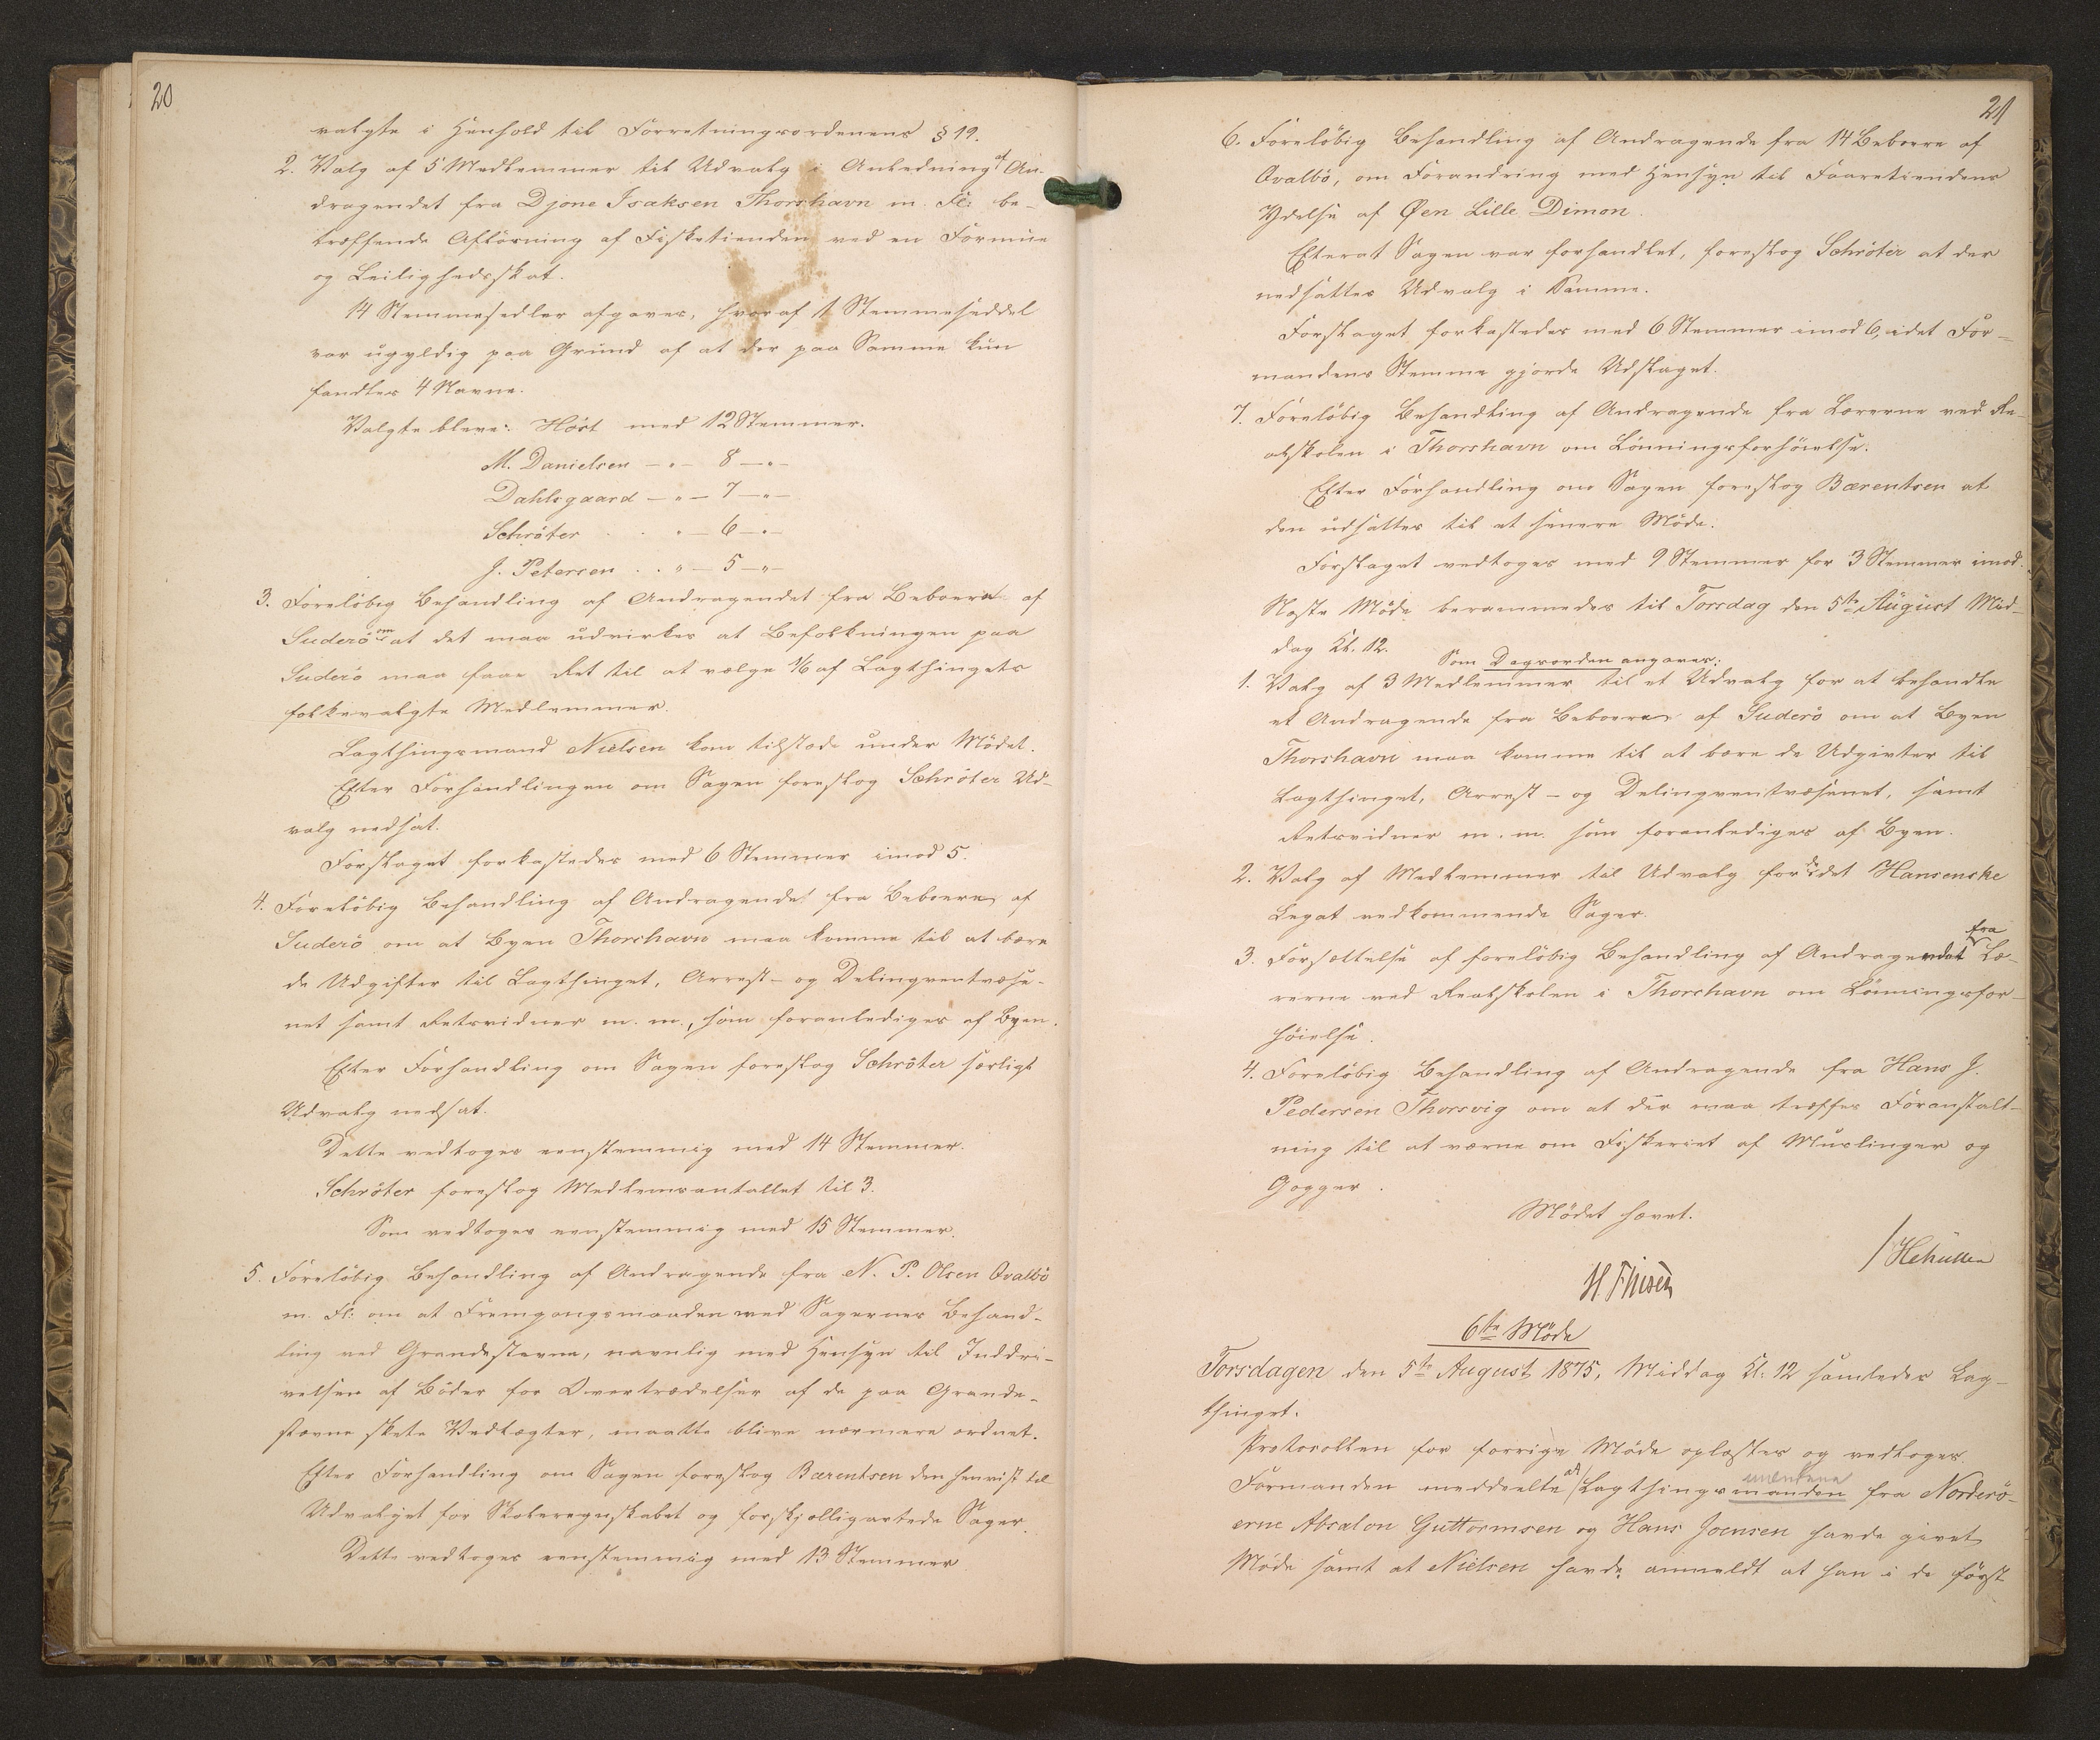 20
valgte i Henhold til Forretningsordenens § 19.
2. Valg af 5 Medlemmer til Udvalg i Anledning af An-
dragendet fra Djone Isaksen Thorshavn m. Fl: be-
træffende Aflösning af Fisketienden ved en Formue
og Leilighedsskat.
14 Stemmesedler afgaves, hvoraf 1 Stemmeseddel
var ugyldig paa Grund af at der paa Samme kun
fandtes 4 Navne.
Valgte bleve: Höst med 12 Stemmer.
M. Danielsen — " — 8 — " —
Dahlsgaard — " — 7 — " —
Schröter . . " — 6 — " —
J. Petersen . . " — 5 — " —
3. Foreløbig Behandling af Andragendet fra Beboere af
Suderö om at det maa udvirkes at Befolkningen paa
Suderö maa faae Ret til at vælge 1/6 af Lagthingets
folkevalgte Medlemmer.
Lagthingsmand Nielsen kom tilstede under Mödet.
Efter Forhandlingen om Sagen foreslog Schröter Ud-
valg nedsat.
Forslaget forkastedes med 6 Stemmer imod 5.
4. Foreløbig Behandling af Andragende fra Beboere af
Suderö om at Byen Thorshavn maa komme til at bære
de Udgifter til Lagthinget, Arrest- og Delinqventvæse-
net samt Retsvidner m. m., som foranlediges af Byen.
Efter Forhandling om Sagen foreslog Schröter særligt
Udvalg nedsat.
Dette vedtoges eenstemmig med 14 Stemmer.
Schröter foreslog Medlemsantallet til 3.
Som vedtoges eenstemmig med 15 Stemmer.
5. Foreløbig Behandling af Andragende fra N. P. Olsen Qvalbö
m. Fl: om at Fremgangsmaaden ved Sagernes Behand-
ling ved Grandestevne, navnlig med Hensyn til Inddri-
velsen af Böder for Overtrædelser af de paa Grande-
stævne skete Vedtægter, maatte blive nærmere ordnet.
Efter Forhandling om Sagen foreslog Bærentsen den henvist til
Udvalget for Skoleregnskabet og forskjelligartede Sager.
Dette vedtoges eenstemmig med 13 Stemmer
21
6. Foreløbig Behandling af Andragende fra 14 Beboere af
Qvalbö, om Forandring med Hensyn til Faaretiendens
Ydelse af Øen Lille Dimon.
Efterat Sagen var forhandlet, foreslog Schröter at der
nedsattes Udvalg i Samme.
Forslaget forkastedes med 6 Stemmer imod 6, idet For-
mandens Stemme gjorde Udslaget.
7. Foreløbig Behandling af Andragende fra Lærerne ved Re-
alskolen i Thorshavn om Lönningsforhöielse.
Efter Forhandling om Sagen foreslog Bærentsen at
den udsattes til et senere Möde.
Forslaget vedtoges med 9 Stemmer for 3 Stemmer imod.
Næste Möde berammedes til Torsdag den 5te August Mid-
dag Kl. 12.
Som Dagsorden angaves:
1. Valg af 3 Medlemmer til et Udvalg for at behandle
et Andragende fra Beboere af Suderö om at Byen
Thorshavn maa komme til at bære de Udgivter til
Lagthinget, Arrest- og Delinqventvæsenet, samt
Retsvidner m. m. som foranlediges af Byen.
2. Valg af Medlemmer til Udvalg for de det Hansenske
Legat vedkommende Sager.
3. Forsættelse af foreløbig Behandling af Andragendet fra Læ-
rerne ved Realskolen i Thorshavn om Lönningsfor-
höielse.
4. Foreløbig Behandling af Andragende fra Hans J.
Pedersen Thorsvig om at der maa træffes Foranstalt-
ning til at værne om Fiskeriet af Muslinger og
Gogger.
Mödet hævet.
6te Möde
Torsdagen den 5te August 1875, Middag Kl. 12 samledes Lag-
thinget.
Protocollen for forrige Möde oplæstes og vedtoges.
Formanden meddeelte at Lagthingsmanden mændene fra Norderö-
erne Absalon Guttormsen og Hans Joensen havde givet
Möde samt at Nielsen havde anmeldt at han i de först